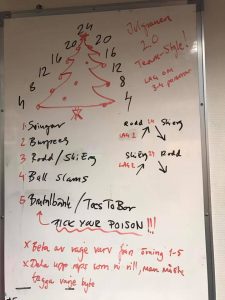 24
20 20
16 16
12 12
8 8
4 4
Julgranen
2.0
Team-Style!
LAG OM
3-4 personer
1 Svingar
2 Burpees
3 Rodd / SkiErg
4 Ball Slams
5 / ToesToBar
PICK YOUR POISON!!!
Rodd SkiErg
LAG 1
SkiErg Rodd
LAG 2
x Beta av varje varv från övning 1-5
x Dela upp reps som ni vill, men måste
tagga varje byte